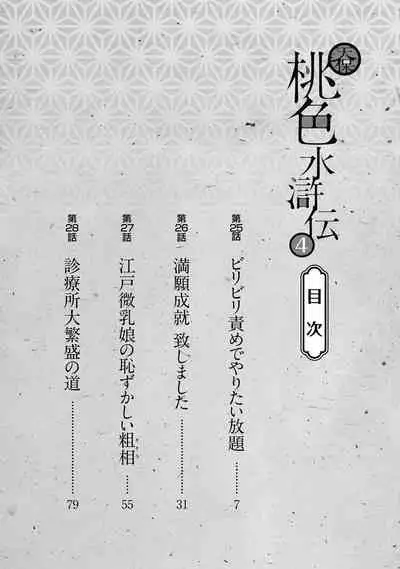 天保
桃色水滸伝
4
目次
第25話
ビリビリ責めでやりたい放題………7
第26話
満願成就 致しました………31
第27話
江戸微乳娘の恥ずかしい粗相……55
第28話
診療所大繁盛の道………79